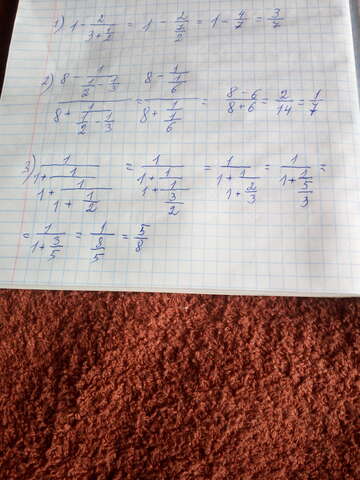 1) 1 - 2/(3 + 1/2) = 1 - 2/(7/2) = 1 - 4/7 = 3/7
2) (8 - 1/(1/2 - 1/3))/(8 + 1/(1/2 - 1/3)) = (8 - 1/(1/6))/(8 + 1/(1/6)) = (8 - 6)/(8 + 6) = 2/14 = 1/7
3) 1/(1 + 1/(1 + 1/(1 + 1/2))) = 1/(1 + 1/(1 + 1/(3/2))) = 1/(1 + 1/(1 + 2/3)) = 1/(1 + 1/(5/3)) =
= 1/(1 + 3/5) = 1/(8/5) = 5/8